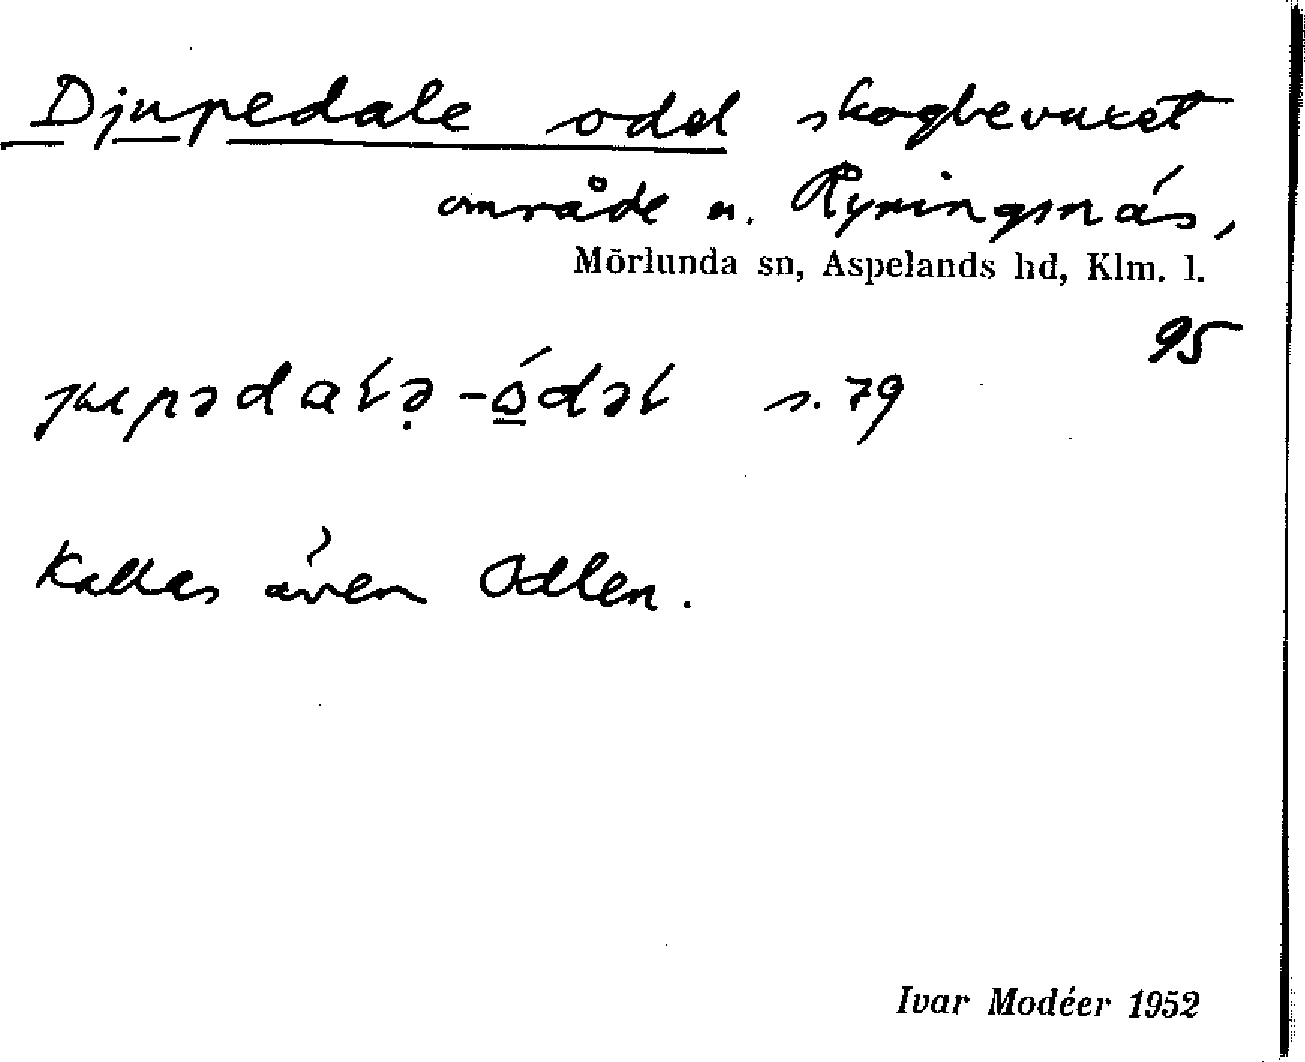 Djupedale odel skogbevuxet
område u. Ryningsnäs,
Mörlunda sn, Aspelands hd, Klm. l.
95
s. 79
Kallas även Odlen.
Ivar Modéer 1952